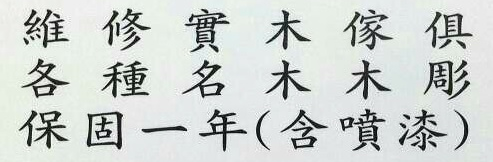 維修實木傢俱
各種名木木彫
保固一年(含噴漆)